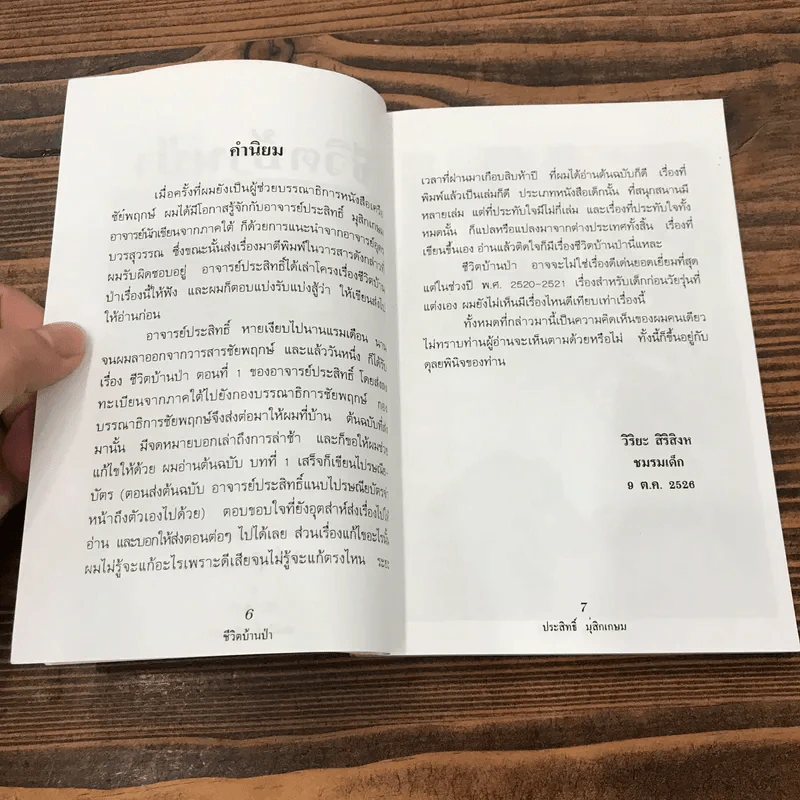 คำนิยม
เมื่อครั้งที่ผมยังเป็นผู้ช่วยบรรณาธิการหนังสือเครือ
ชัยพฤกษ์ ผมได้มีโอกาสรู้จักกับอาจารย์ประสิทธิ์ มุสิกเกษม
อาจารย์นักเขียนจากภาคใต้ ก็ด้วยการแนะนำจากอาจารย์
บวรสุวรรณ ซึ่งขณะนั้นส่งเรื่องมาตีพิมพ์ในวารสารดังกล่าวที่
ผมรับผิดชอบอยู่ อาจารย์ประสิทธิ์ได้เล่าโครงเรื่องชีวิตบ้าน
ป่าเรื่องนี้ให้ฟัง และผมก็ตอบแบ่งรับแบ่งสู้ว่า ให้เขียนส่งไป
ให้อ่านก่อน
อาจารย์ประสิทธิ์ หายเงียบไปนานแรมเดือน นาน
จนผมลาออกจากวารสารชัยพฤกษ์ และแล้ววันหนึ่ง ก็ได้รับ
เรื่อง ชีวิตบ้านป่า ตอนที่ 1 ของอาจารย์ประสิทธิ์ โดยส่งลง
ทะเบียนจากภาคใต้ไปยังกองบรรณาธิการชัยพฤกษ์ กอง
บรรณาธิการชัยพฤกษ์จึงส่งต่อมาให้ผมที่บ้าน ต้นฉบับที่ส่ง
มานั้น มีจดหมายบอกเล่าถึงการล่าช้า และก็ขอให้ผมช่วย
แก้ไขให้ด้วย ผมอ่านต้นฉบับ บทที่ 1 เสร็จก็เขียนไปรษณีย-
บัตร (ตอนส่งต้นฉบับ อาจารย์ประสิทธิ์แนบไปรษณียบัตรจ่า
หน้าถึงตัวเองไปด้วย) ตอบขอบใจที่ยังอุตส่าห์ส่งเรื่องไปให้
อ่าน และบอกให้ส่งตอนต่อๆ ไปได้เลย ส่วนเรื่องแก้ไขอะไรนั้น
ผมไม่รู้จะแก้อะไรเพราะดีเสียจนไม่รู้จะแก้ตรงไหน ระยะ
6
ชีวิตบ้านป่า
เวลาที่ผ่านมาเกือบสิบห้าปี ที่ผมได้อ่านต้นฉบับก็ดี เรื่องที่
พิมพ์แล้วเป็นเล่มก็ดี ประเภทหนังสือเด็กนั้น ที่สนุกสนานมี
หลายเล่ม แต่ที่ประทับใจมีไม่กี่เล่ม และเรื่องที่ประทับใจทั้ง
หมดนั้น ก็แปลหรือแปลงมาจากต่างประเทศทั้งสิ้น เรื่องที่
เขียนขึ้นเอง อ่านแล้วติดใจก็มีเรื่องชีวิตบ้านป่านี่แหละ
ชีวิตบ้านป่า อาจจะไม่ใช่เรื่องดีเด่นยอดเยี่ยมที่สุด
แต่ในช่วงปี พ.ศ. 2520-2521 เรื่องสำหรับเด็กก่อนวัยรุ่นที่
แต่งเอง ผมยังไม่เห็นมีเรื่องไหนดีเทียบเท่าเรื่องนี้
ทั้งหมดที่กล่าวมานี้เป็นความคิดเห็นของผมคนเดียว
ไม่ทราบท่านผู้อ่านจะเห็นตามด้วยหรือไม่ ทั้งนี้ก็ขึ้นอยู่กับ
ดุลยพินิจของท่าน
วิริยะ สิริสิงห
ชมรมเด็ก
9 ต.ค. 2526
7
ประสิทธิ์ มุสิกเกษม